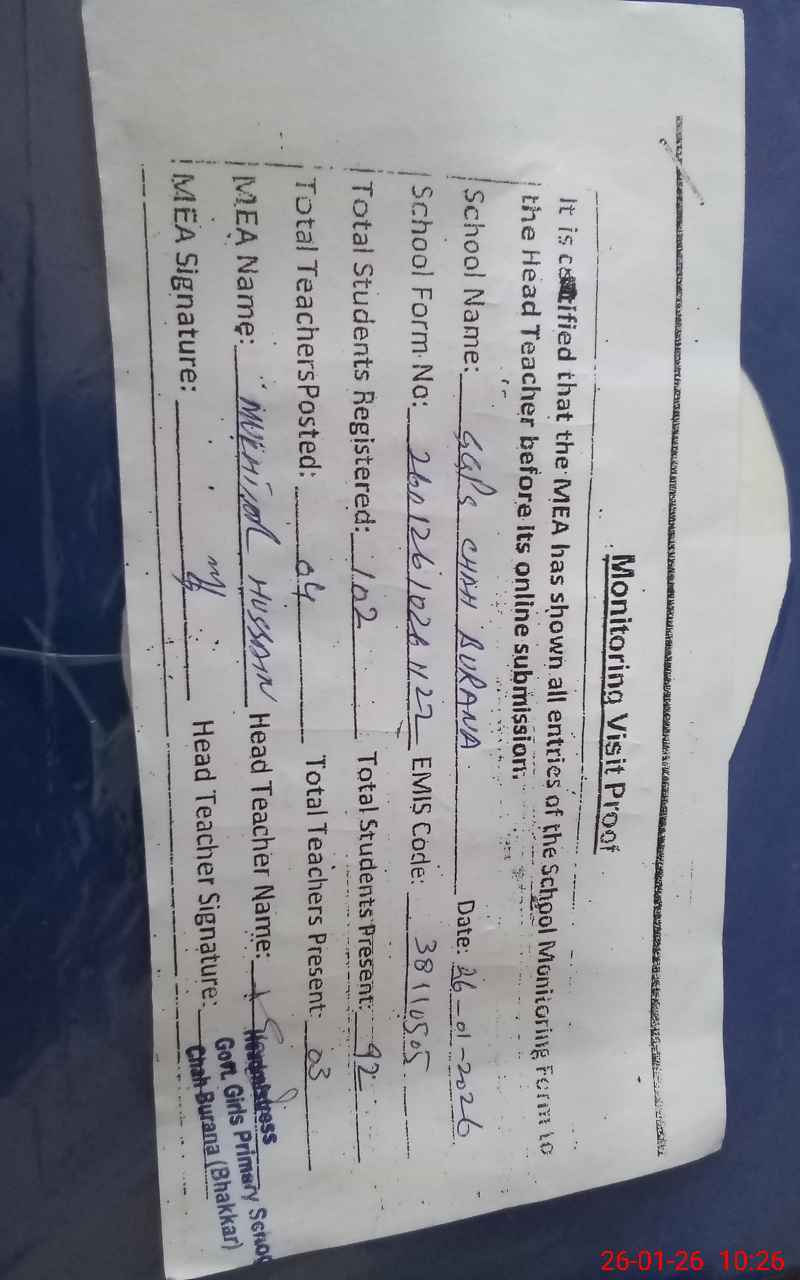 Monitoring Visit Proof
It is certified that the MEA has shown all entries of the School Monitoring Form to
the Head Teacher before its online submission.
School Name: GGPS CHAH BURANA Date: 26-01-2026
School Form No: EMIS Code: 38110505
Total Students Registered: 102 Total Students Present: 92
Total TeachersPosted: 04 Total Teachers Present: 03
MEA Name: HUSSAIN Head Teacher Name:
MEA Signature: Head Teacher Signature:
Headmistress
Govt. Girls Primary School
Chah Burana (Bhakkar)
26-01-26 10:26